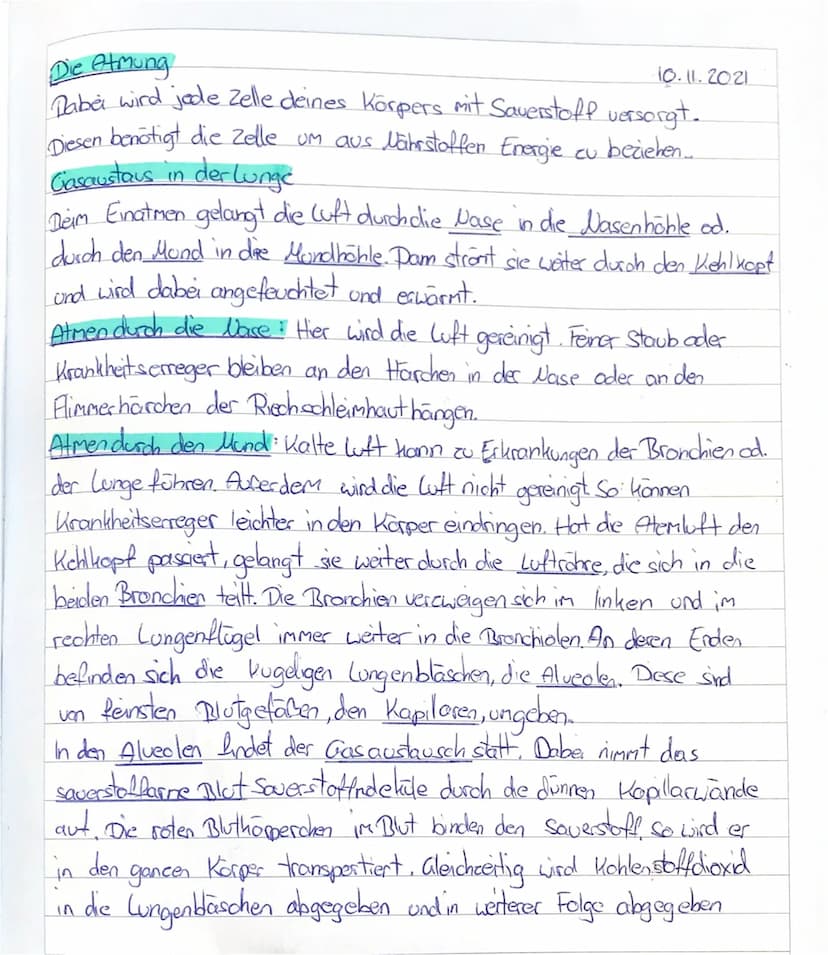 Die Atmung
10.11.2021
Dabei wird jede Zelle deines Körpers mit Sauerstoff versorgt.
Diesen benötigt die Zelle um aus Nährstoffen Energie zu beziehen.
Gasaustaus in der Lunge
Beim Einatmen gelangt die Luft durch die Nase in die Nasenhöhle od.
durch den Mund in die Mundhöhle. Dann strömt sie weiter durch den Kehlkopf
und wird dabei angefeuchtet und erwärmt.
Atmen durch die Nase: Hier wird die Luft gereinigt. Feiner Staub oder
Krankheitserreger bleiben an den Härchen in der Nase oder an den
Flimmerhärchen der Riechschleimhaut hängen.
Atmen durch den Mund: Kalte Luft kann zu Erkrankungen der Bronchien od.
der Lunge führen. Außerdem wird die Luft nicht gereinigt So können
Krankheitserreger leichter in den Körper eindringen. Hat die Atemluft den
Kehlkopf passiert, gelangt sie weiter durch die Luftröhre, die sich in die
beiden Bronchien teilt. Die Bronchien verzweigen sich im linken und im
rechten Lungenflügel immer weiter in die Bronchiolen. An deren Enden
befinden sich die kugeligen Lungenbläschen, die Alveolen. Diese sind
von feinsten Blutgefäßen, den Kapillaren, umgeben.
In den Alveolen findet der Gasaustausch statt. Dabei nimmt das
sauerstoffarme Blut Sauerstoffmoleküle durch die dünnen Kapillarwände
auf. Die roten Blutkörperchen im Blut binden den Sauerstoff. So wird er
in den ganzen Körper transportiert. Gleichzeitig wird Kohlenstoffdioxid
in die Lungenbläschen abgegeben und in weiterer Folge abgegeben